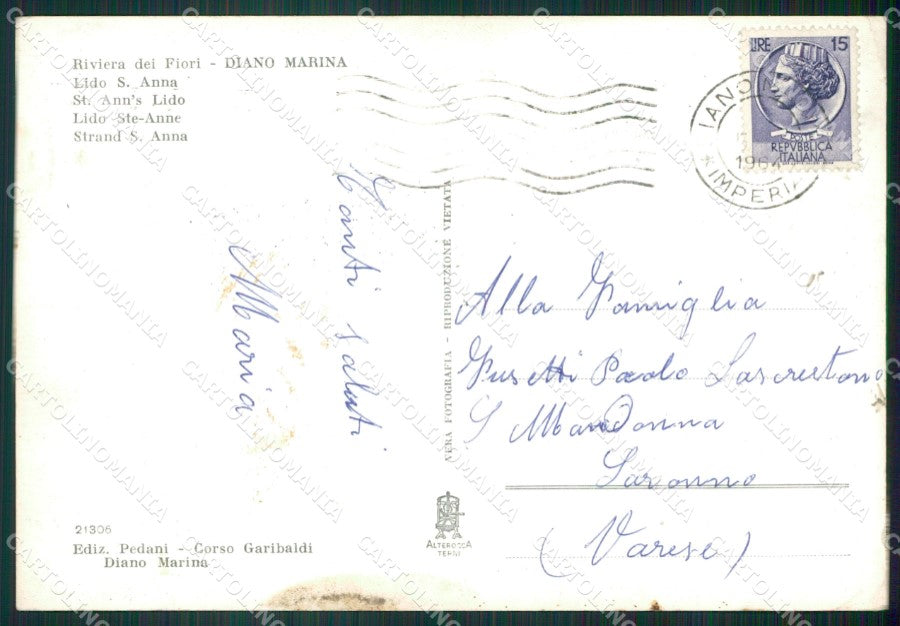 Riviera dei Fiori - DIANO MARINA
Lido S. Anna
St. Ann's Lido
Lido Ste-Anne
Strand S. Anna
LIRE 15
POSTE
REPVBBLICA
ITALIANA
IANO
1964
* IMPERIA
Tanti saluti
Maria
VERA FOTOGRAFIA - RIPRODUZIONE VIETATA
Alla Famiglia
Fusetti Paolo Sacrestano
S Madonna
Saronno
(Varese)
21306
Ediz. Pedani - Corso Garibaldi
Diano Marina
ALTEROCCA
TERNI
CARTOLINOMANIA